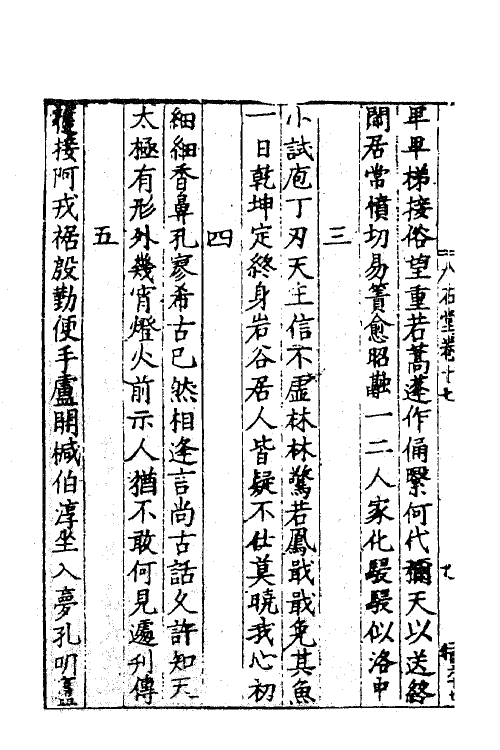 八石堂卷十七
卑卑梯接俗望重若蒿蓬作俑緊何代獮天以送終
閒居常憤切易簀愈昭融一二人家化駸駸似洛中
三
小試庖丁刃天全信不虛林林驚若鳳戢戢免其魚
一日乾坤定終身岩谷居人皆疑不仕莫曉我心初
四
細細香鼻孔寥希古已然相逢言尚古話久許知天
太極有形外幾宵燈火前示人猶不敢何見遽刊傳
五
獲接阿戎裾殷勤便手臚開椷伯淳坐入夢孔明